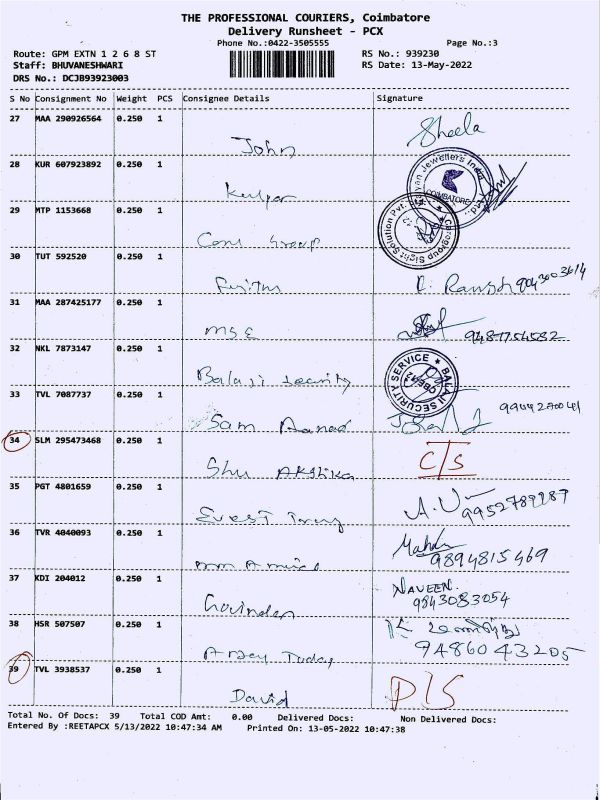 THE PROFESSIONAL COURIERS, Coimbatore
Delivery Runsheet - PCX
Phone No.:0422-3505555
Page No.:3
Route: GPM EXTN 1 2 6 8 ST
RS No.: 939230
Staff: BHUVANESHWARI
RS Date: 13-May-2022
DRS No.: DCJB93923003
S No Consignment No Weight PCS Consignee Details Signature
27 MAA 290926564 0.250 1
John Sheela
28 KUR 607923892 0.250 1
Jewellers India COIMBATORE
29 MTP 1153668 0.250 1
Group Sight Solution Pvt.
30 TUT 592520 0.250 1
Fujitsu
31 MAA 287425177 0.250 1
MSE
32 NKL 7873147 0.250 1
Balaji Security BALAJI SECURITY SERVICE
33 TVL 7087737 0.250 1
Sam
34 SLM 295473468 0.250 1
C/S
35 PGT 4801659 0.250 1
9952789987
36 TVR 4040093 0.250 1
9894815469
37 KDI 204012 0.250 1
NAVEEN.
9843083054
38 HSR 507507 0.250 1
9486043205
39 TVL 3938537 0.250 1
David D/S
Total No. Of Docs: 39 Total COD Amt: 0.00 Delivered Docs: Non Delivered Docs:
Entered By :REETAPCX 5/13/2022 10:47:34 AM Printed On: 13-05-2022 10:47:38